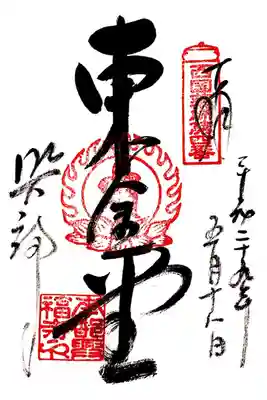 奉拝
平成二九年
五月十八日
東金堂
興福寺